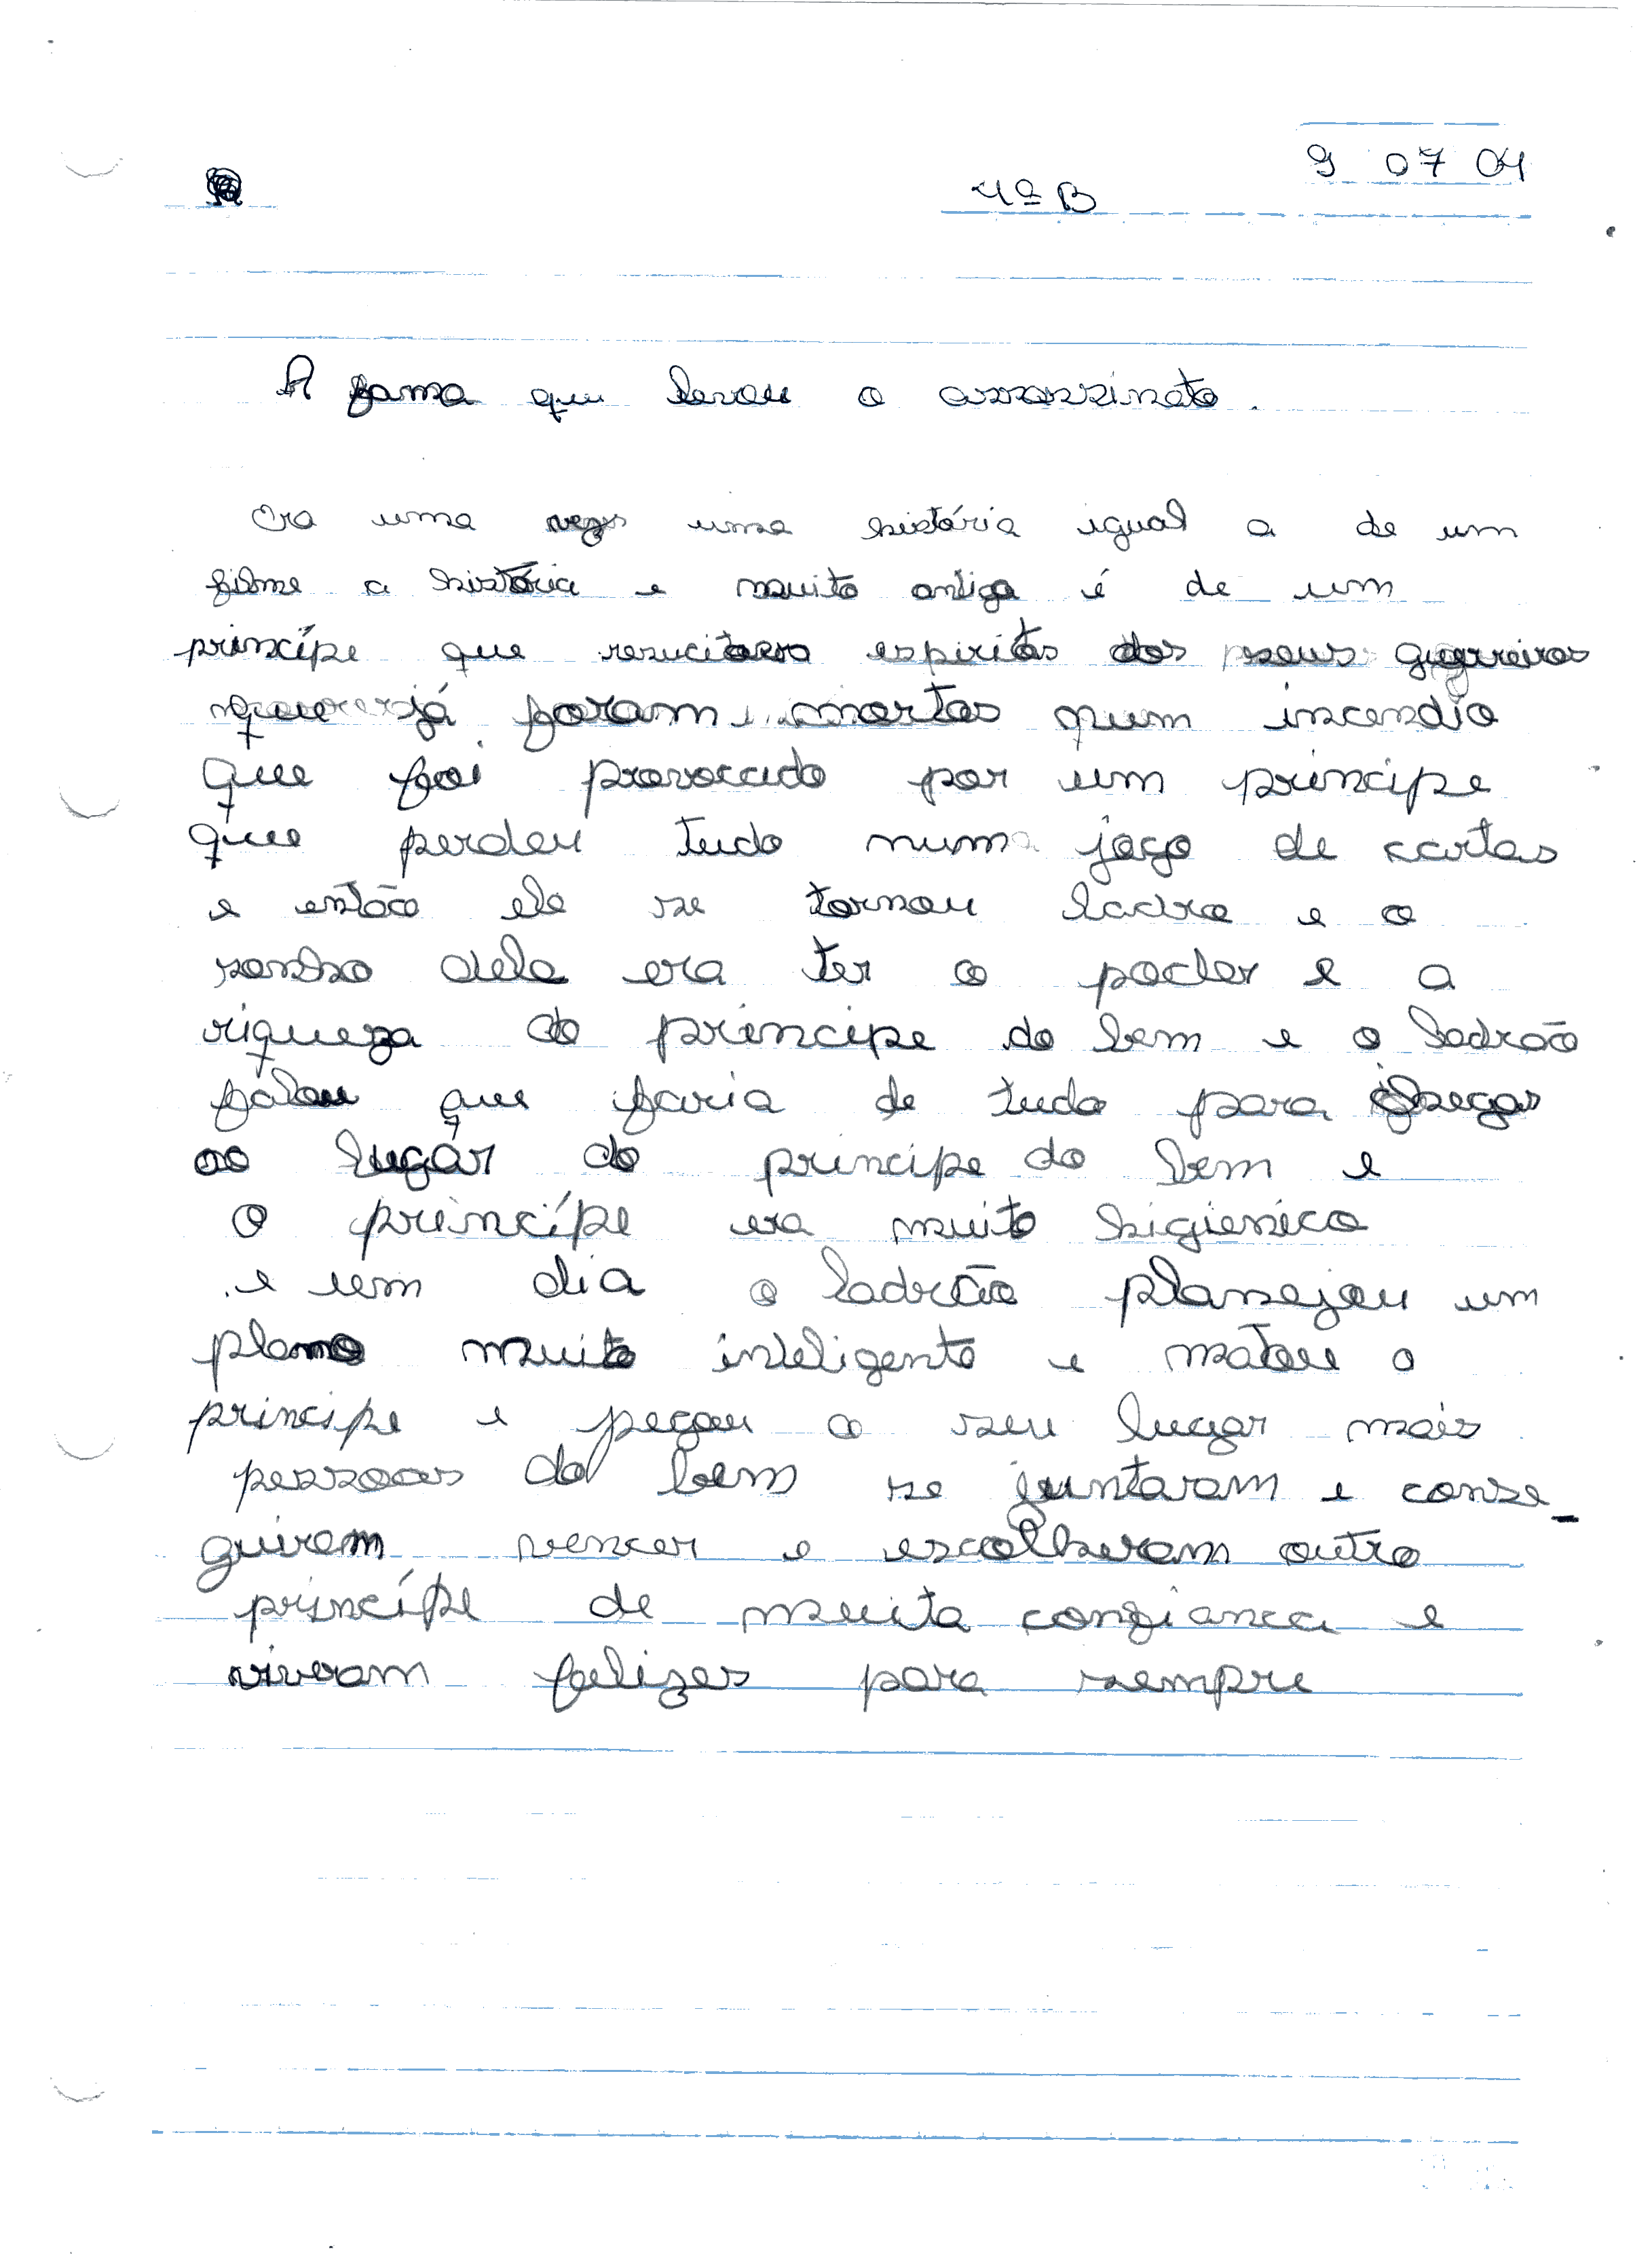 9 07 04
4ª B
A fama que levou o assassinato.
Era uma vez uma história igual a de um
filme a história e muito antiga é de um
princípe que resucitava espiritos dos seus guerreiros
que já foram mortos num incendio
que foi provocado por um principe
que perdeu tudo num jogo de cartas
e então ele se tornou ladrão e o
sonho dele era ter o poder e a
riqueza do principe do bem e o ladrão
falou que faria de tudo para chegar
ao lugar do principe do bem e
o princípe era muito higienico
e um dia o ladrão planejou um
plano muito inteligente e matou o
principe e pegou o seu lugar mais
pessoas do bem se juntaram e conse-
guiram vencer e escolheram outro
princípe de muita confianca e
viveram felizes para sempre